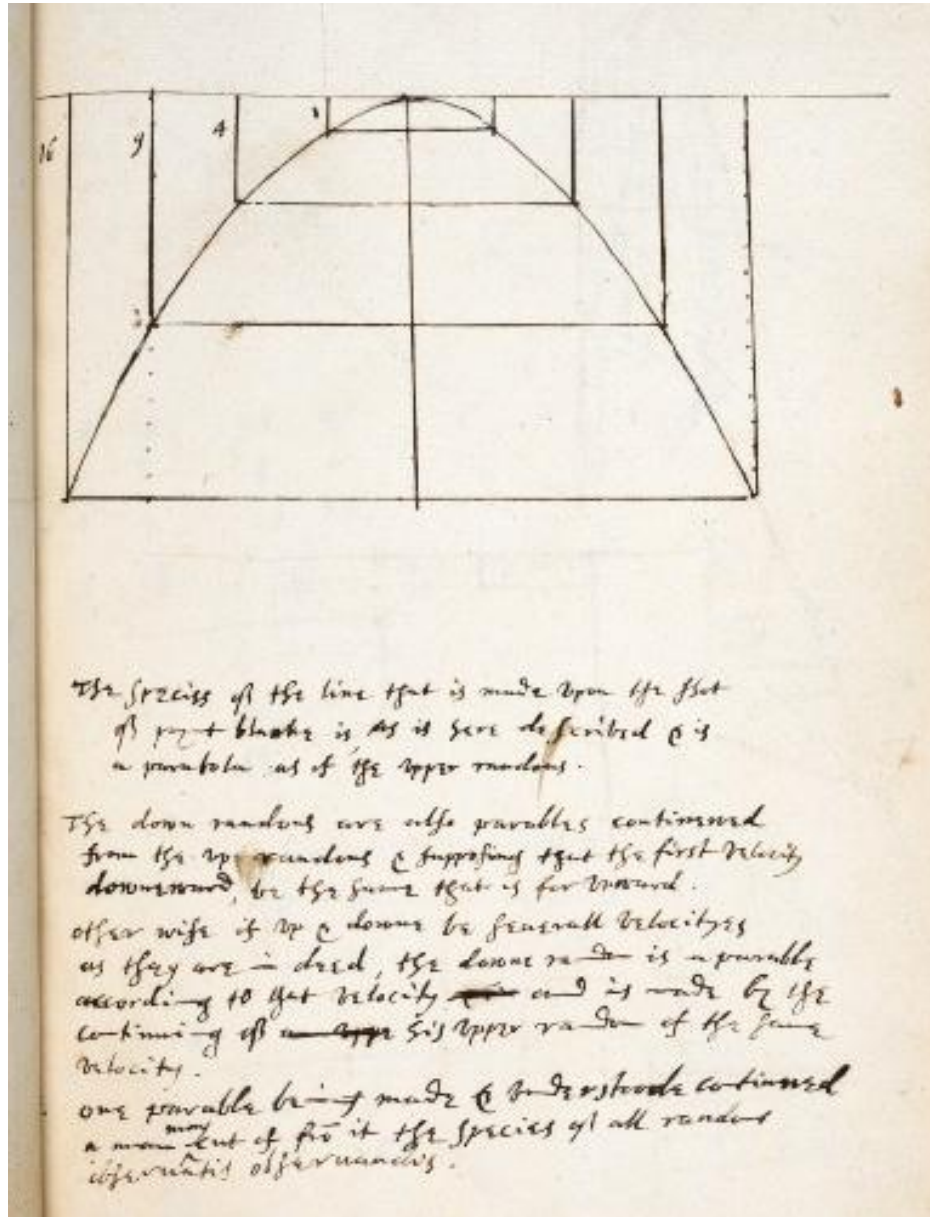 16 9 4 1
The species of the line that is made upon the shot
of poynt blanke is as is here described & is
a parabola as of the upper randons.
The down randons are also parables continewed
from the upper randons & supposing that the first velocity
downeward, be the same that is for upward.
other wise if up & downe be severall velocityes
as they are in deed, the downe randon is a parable
according to that velocity and is made by the
continuing of his upper randon of the same
velocity.
one parable being made & understoode continued
a man may cut of frō it the species of all randons
observatis observandis.